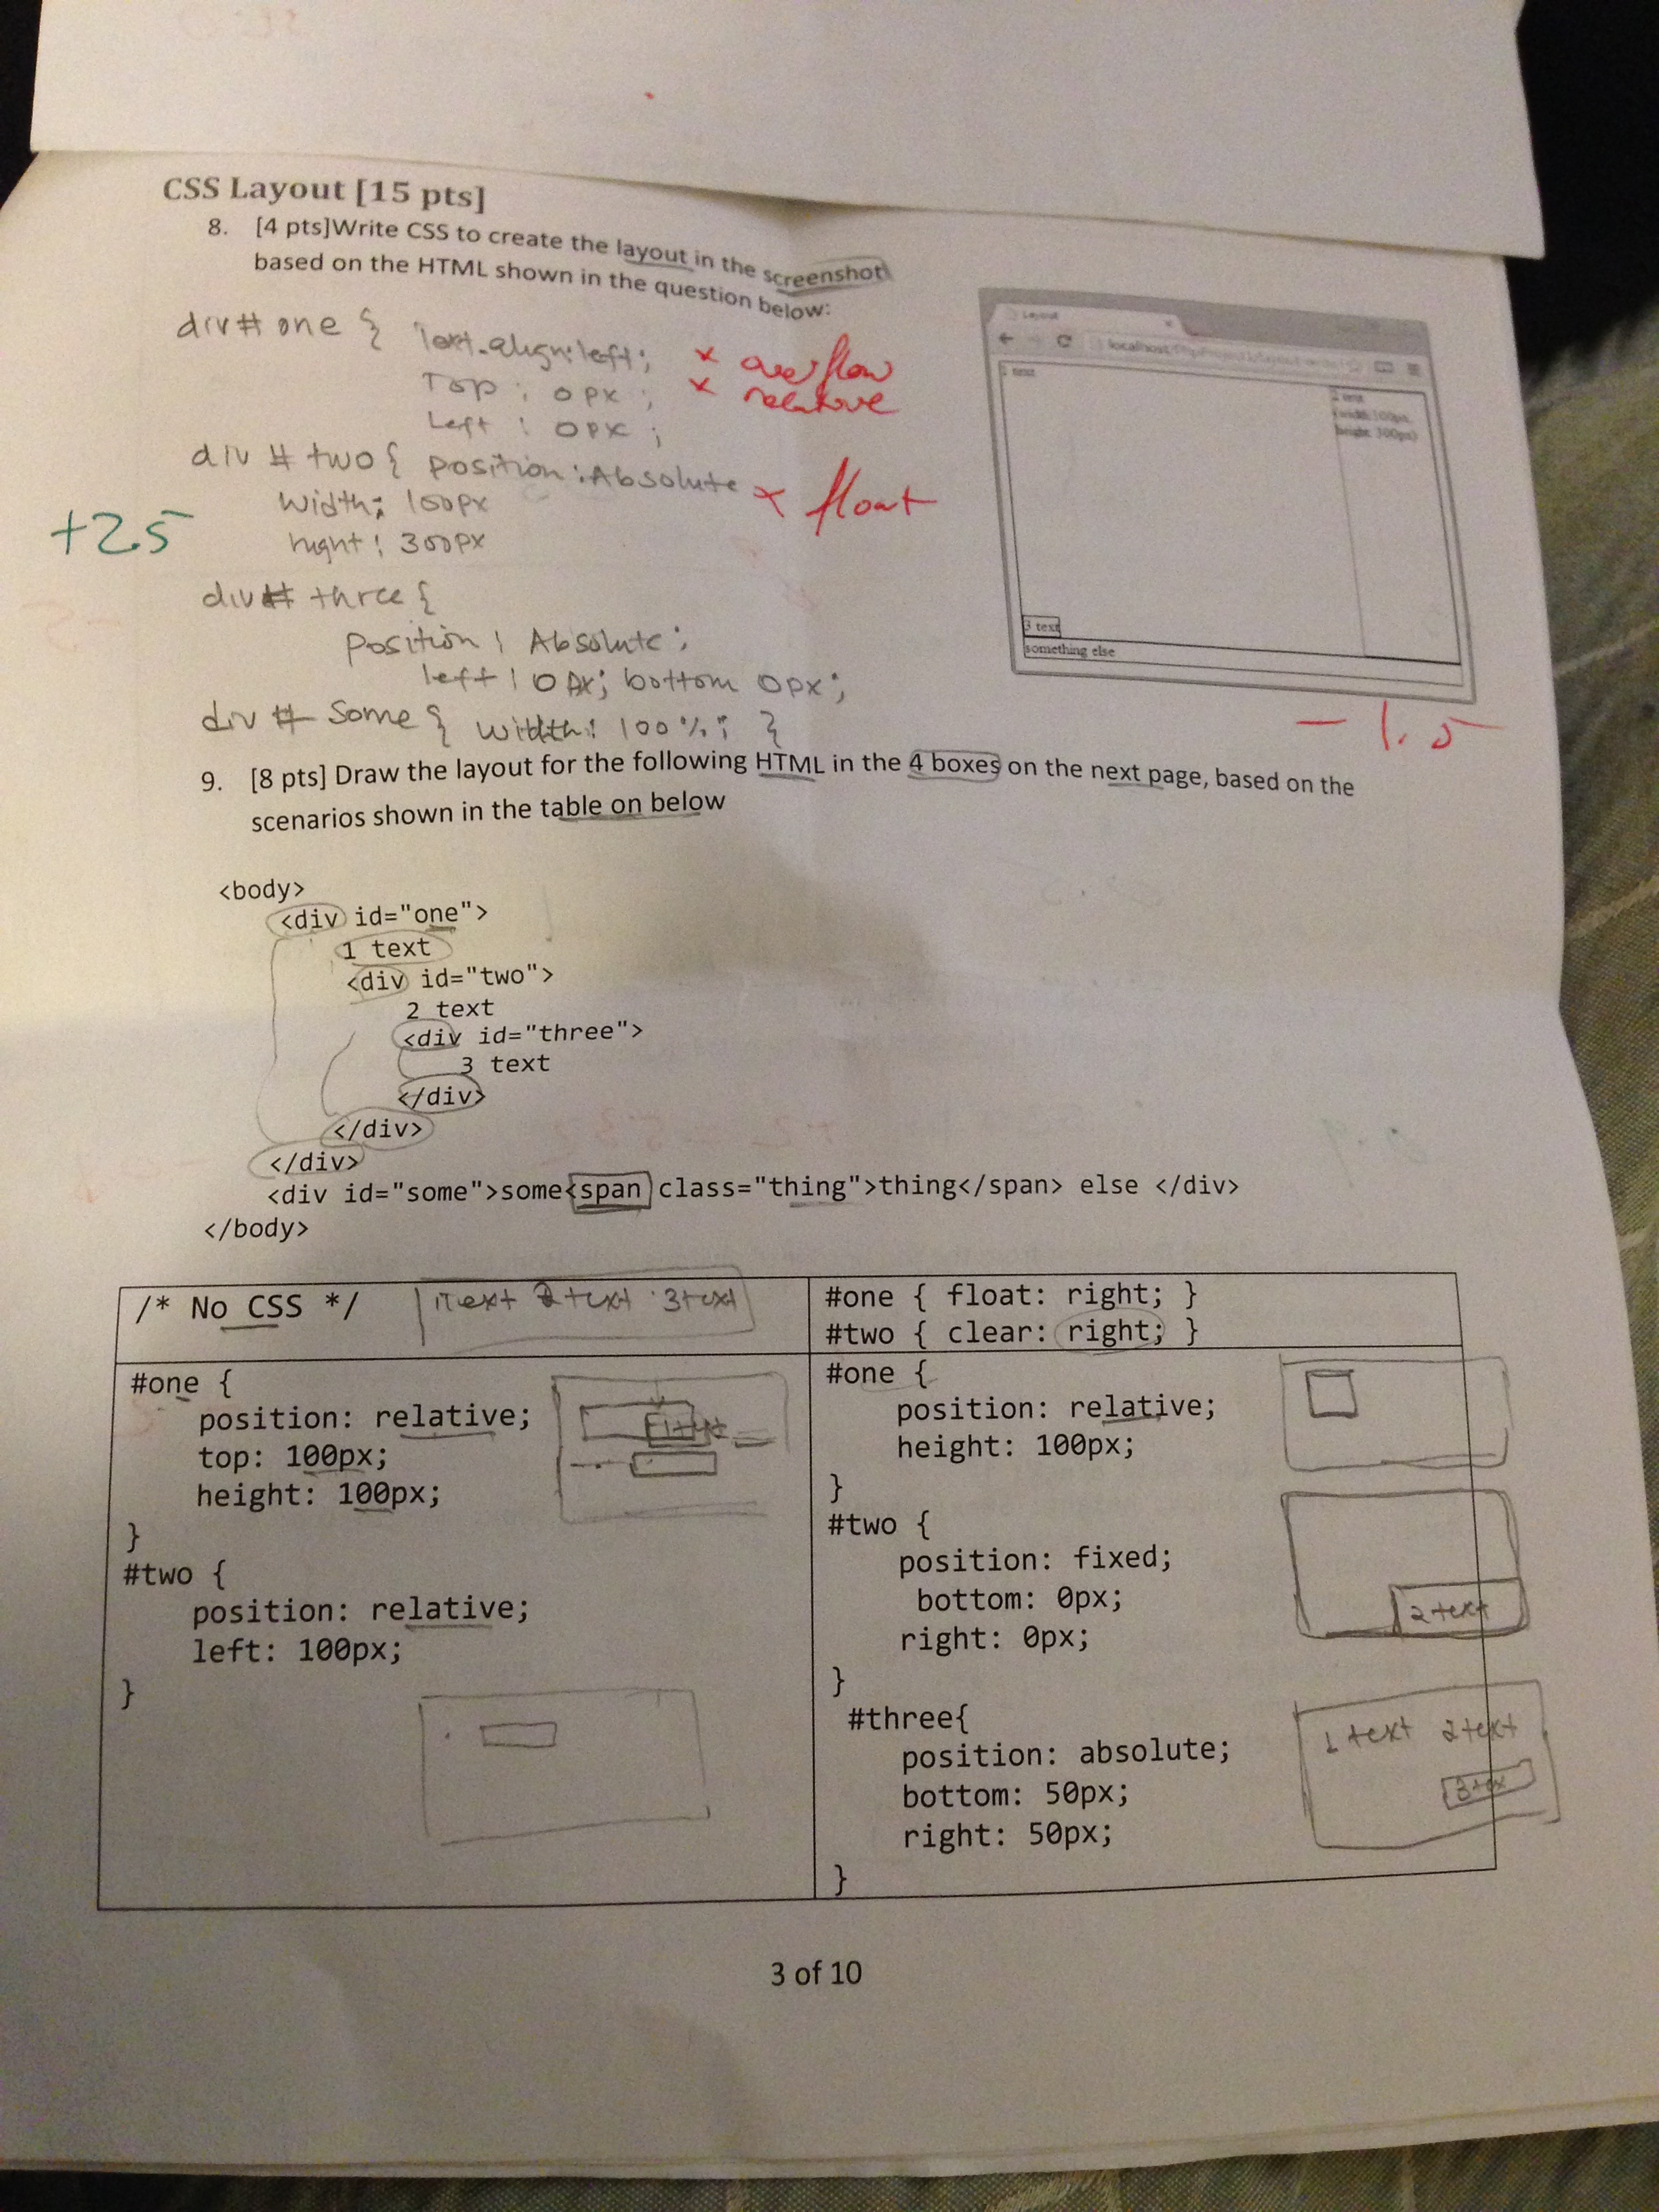 CSS Layout [15 pts]
8. [4 pts]Write CSS to create the layout in the screenshot
based on the HTML shown in the question below:
div# one { text-align:left; x overflow
Top : 0px ; x relative
Left : 0px ;
div # two { position:Absolute x float
width: 100px
+2.5
hight: 300px
div# three {
position: Absolute;
left: 0px; bottom 0px;
div # Some { width: 100%; }
Layout
localhost
1 text
2 text
(width:100px,
height:300px)
3 text
something else
-1.5
9. [8 pts] Draw the layout for the following HTML in the 4 boxes on the next page, based on the
scenarios shown in the table on below
<body>
<div id="one">
1 text
<div id="two">
2 text
<div id="three">
3 text
</div>
</div>
</div>
<div id="some">some<span class="thing">thing</span> else </div>
</body>
/* No CSS */ 1 text 2 text 3 text
#one { float: right; }
#two { clear: right; }
#one {
position: relative;
top: 100px;
height: 100px;
}
#two {
position: relative;
left: 100px;
}
#one {
position: relative;
height: 100px;
}
#two {
position: fixed;
bottom: 0px;
right: 0px;
}
2 text
#three{
position: absolute;
bottom: 50px;
right: 50px;
}
1 text 2 text
3 tex
3 of 10